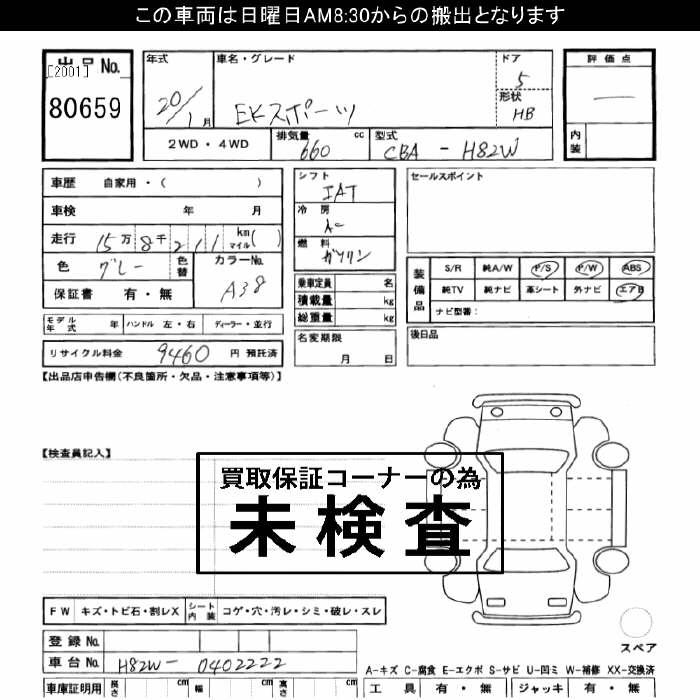 この車両は日曜日AM8:30からの搬出となります
出品No.
[2001]
80659
年式
20/1月
車名・グレード
EKスポーツ
ドア
5
形状
HB
評価点
—
内装
2WD・4WD
排気量
660 cc
型式
CBA - H82W
車歴 自家用・( )
車検 年 月
走行 15万8千211 km マイル( )
色 グレー 色替
カラーNo.
A38
保証書 有・無
シフト
IAT
冷房
燃料
ガソリン
乗車定員 名
積載量 kg
総重量 kg
セールスポイント
装備品
S/R 純A/W P/S P/W ABS
純TV 純ナビ 革シート 外ナビ エアB
ナビ型番:
モデル年式 年 ハンドル 左・右 ディーラー・並行
リサイクル料金 9460 円 預託済
名変期限
月 日
後日品
【出品店申告欄(不良箇所・欠品・注意事項等)】
【検査員記入】
買取保証コーナーの為
未検査
FW キズ・トビ石・割レX シート内装 コゲ・穴・汚レ・シミ・破レ・スレ
登録No.
車台No. H82W- 0402222
スペア
A-キズ C-腐食 E-エクボ S-サビ U-凹ミ W-補修 XX-交換済
車庫証明用 長さ cm 幅 cm 高さ cm
工具 有・無 ジャッキ 有・無